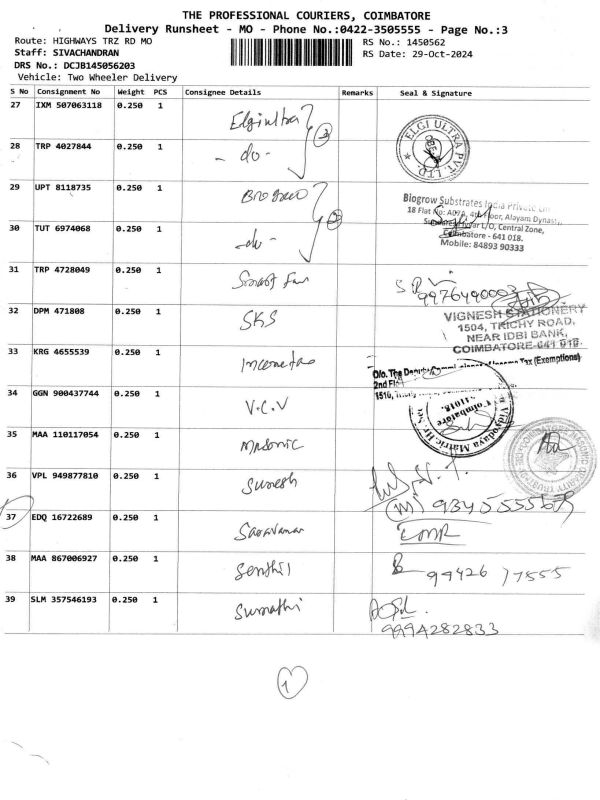 THE PROFESSIONAL COURIERS, COIMBATORE
Delivery Runsheet - MO - Phone No.:0422-3505555 - Page No.:3
Route: HIGHWAYS TRZ RD MO
RS No.: 1450562
Staff: SIVACHANDRAN
RS Date: 29-Oct-2024
DRS No.: DCJB145056203
Vehicle: Two Wheeler Delivery
S No Consignment No Weight PCS Consignee Details Remarks Seal & Signature
27 IXM 507063118 0.250 1 Elgiultra
28 TRP 4027844 0.250 1 - do -
ELGI ULTRA PVT. LTD.
29 UPT 8118735 0.250 1
Biogrow Substrates India Private Lim
18 Flat No: A07A, 4th Floor, Alayam Dynasty,
30 TUT 6974068 0.250 1 - do -
L/O, Central Zone,
Coimbatore - 641 018.
Mobile: 84893 90333
31 TRP 4728049 0.250 1 Smart
9976490003
32 DPM 471808 0.250 1 SKS
VIGNESH STATIONERY
1504, TRICHY ROAD,
NEAR IDBI BANK,
COIMBATORE-641 018
33 KRG 4655539 0.250 1 Incometax
O/o. The Deputy Commissioner of Income Tax (Exemptions)
2nd Fl
34 GGN 900437744 0.250 1 V.C.V
Vidyodaya Matric. Hr.
Coimbatore
35 MAA 110117054 0.250 1 Masonic
36 VPL 949877810 0.250 1 Suresh
37 EDQ 16722689 0.250 1 Saravanan
38 MAA 867006927 0.250 1 Senthil
99426 77555
39 SLM 357546193 0.250 1 Sumathi
9994282833
1